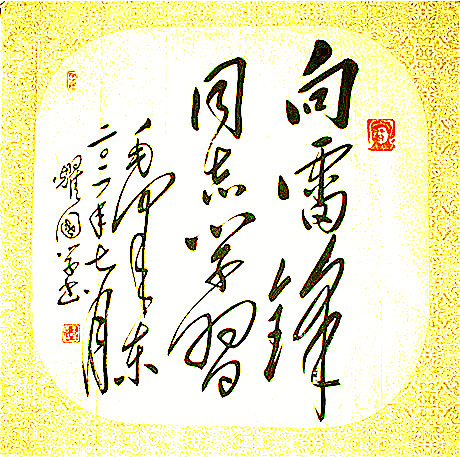 向雷锋
同志学习
毛泽东
二〇二一年七月
耀国学书